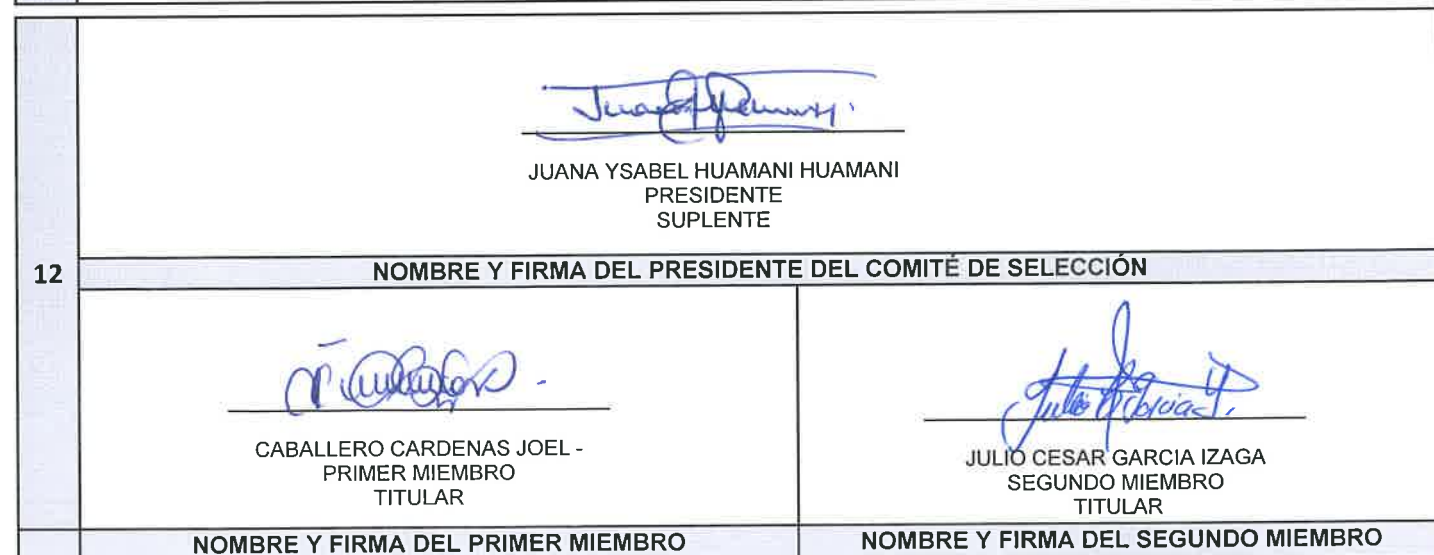 JUANA YSABEL HUAMANI HUAMANI
PRESIDENTE
SUPLENTE
12
NOMBRE Y FIRMA DEL PRESIDENTE DEL COMITÉ DE SELECCIÓN
CABALLERO CARDENAS JOEL -
PRIMER MIEMBRO
TITULAR
JULIO CESAR GARCIA IZAGA
SEGUNDO MIEMBRO
TITULAR
NOMBRE Y FIRMA DEL PRIMER MIEMBRO
NOMBRE Y FIRMA DEL SEGUNDO MIEMBRO